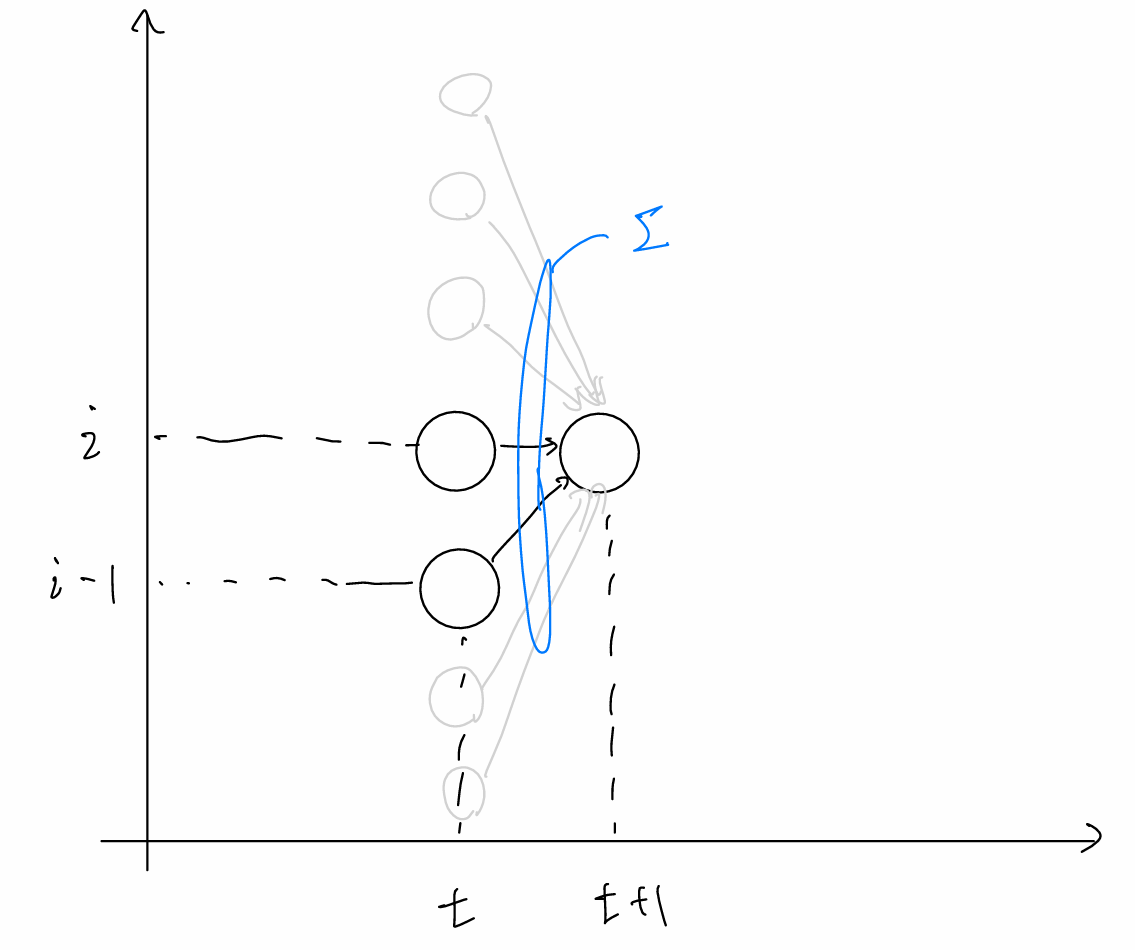 Σ
i
i-1
t
t+1